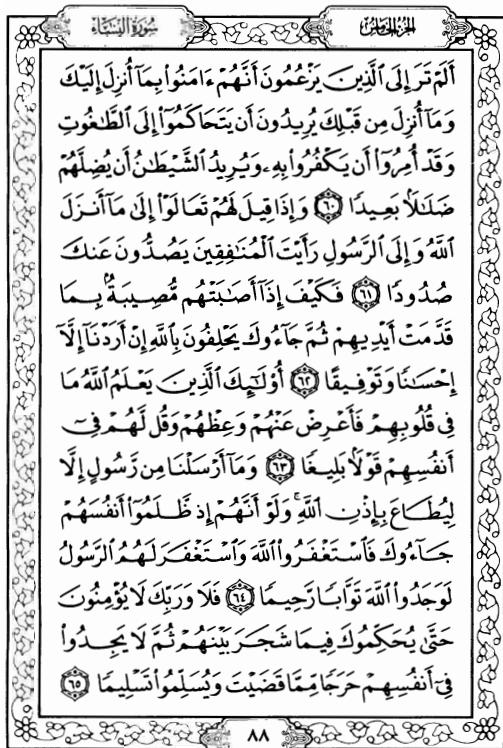 سُورَةُ النِّسَاءِ الجُزْءُ الخَامِسُ
أَلَمْ تَرَ إِلَى ٱلَّذِينَ يَزْعُمُونَ أَنَّهُمْ ءَامَنُوا۟ بِمَآ أُنزِلَ إِلَيْكَ
وَمَآ أُنزِلَ مِن قَبْلِكَ يُرِيدُونَ أَن يَتَحَاكَمُوٓا۟ إِلَى ٱلطَّٰغُوتِ
وَقَدْ أُمِرُوٓا۟ أَن يَكْفُرُوا۟ بِهِۦ وَيُرِيدُ ٱلشَّيْطَٰنُ أَن يُضِلَّهُمْ
ضَلَٰلًۢا بَعِيدًا ٦٠ وَإِذَا قِيلَ لَهُمْ تَعَالَوْا۟ إِلَىٰ مَآ أَنزَلَ
ٱللَّهُ وَإِلَى ٱلرَّسُولِ رَأَيْتَ ٱلْمُنَٰفِقِينَ يَصُدُّونَ عَنكَ
صُدُودًا ٦١ فَكَيْفَ إِذَآ أَصَٰبَتْهُم مُّصِيبَةٌۢ بِمَا
قَدَّمَتْ أَيْدِيهِمْ ثُمَّ جَآءُوكَ يَحْلِفُونَ بِٱللَّهِ إِنْ أَرَدْنَآ إِلَّآ
إِحْسَٰنًا وَتَوْفِيقًا ٦٢ أُو۟لَٰٓئِكَ ٱلَّذِينَ يَعْلَمُ ٱللَّهُ مَا
فِى قُلُوبِهِمْ فَأَعْرِضْ عَنْهُمْ وَعِظْهُمْ وَقُل لَّهُمْ فِىٓ
أَنفُسِهِمْ قَوْلًۢا بَلِيغًا ٦٣ وَمَآ أَرْسَلْنَا مِن رَّسُولٍ إِلَّا
لِيُطَاعَ بِإِذْنِ ٱللَّهِ ۚ وَلَوْ أَنَّهُمْ إِذ ظَّلَمُوٓا۟ أَنفُسَهُمْ
جَآءُوكَ فَٱسْتَغْفَرُوا۟ ٱللَّهَ وَٱسْتَغْفَرَ لَهُمُ ٱلرَّسُولُ
لَوَجَدُوا۟ ٱللَّهَ تَوَّابًا رَّحِيمًا ٦٤ فَلَا وَرَبِّكَ لَا يُؤْمِنُونَ
حَتَّىٰ يُحَكِّمُوكَ فِيمَا شَجَرَ بَيْنَهُمْ ثُمَّ لَا يَجِدُوا۟
فِىٓ أَنفُسِهِمْ حَرَجًا مِّمَّا قَضَيْتَ وَيُسَلِّمُوا۟ تَسْلِيمًا ٦٥
٨٨